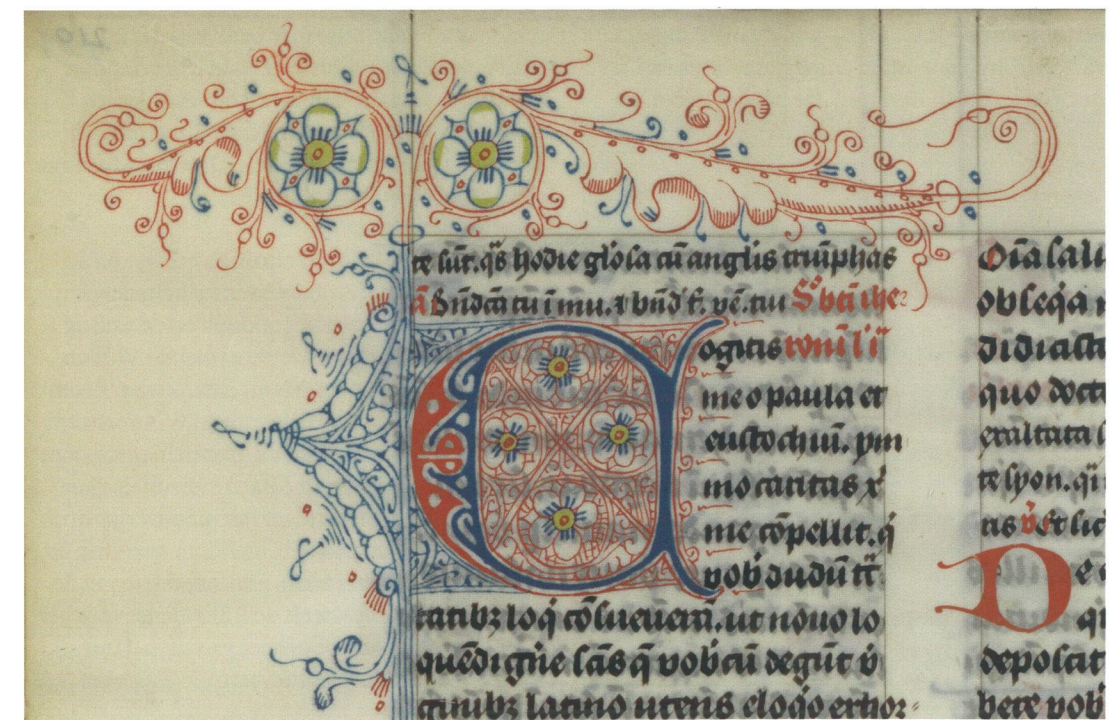 te sūt. q̄s hodie gl̄osa cū anglis triūphas
ā bn̄dca tu i mu. ⁊ bn̄d fr̄ vē. tui S' bt̄i ihe
Cogitis roni l i
me o paula et
eustochiū. ym
mo caritas x̄
me cōpellit. q̇
vob dudū tr̄
tatibȝ loq̇ cōsueuerā. ut nouo lo
quēdi gn̄e sc̄is q̄ vob cū degūt v̇
ginibȝ latino utens eloq̇o exhor
Oīa
obseq̇a
didicisti
quo docto
exaltata
te syon. qi
tis v̇ Et
D e
qu
deposcat
bere vob